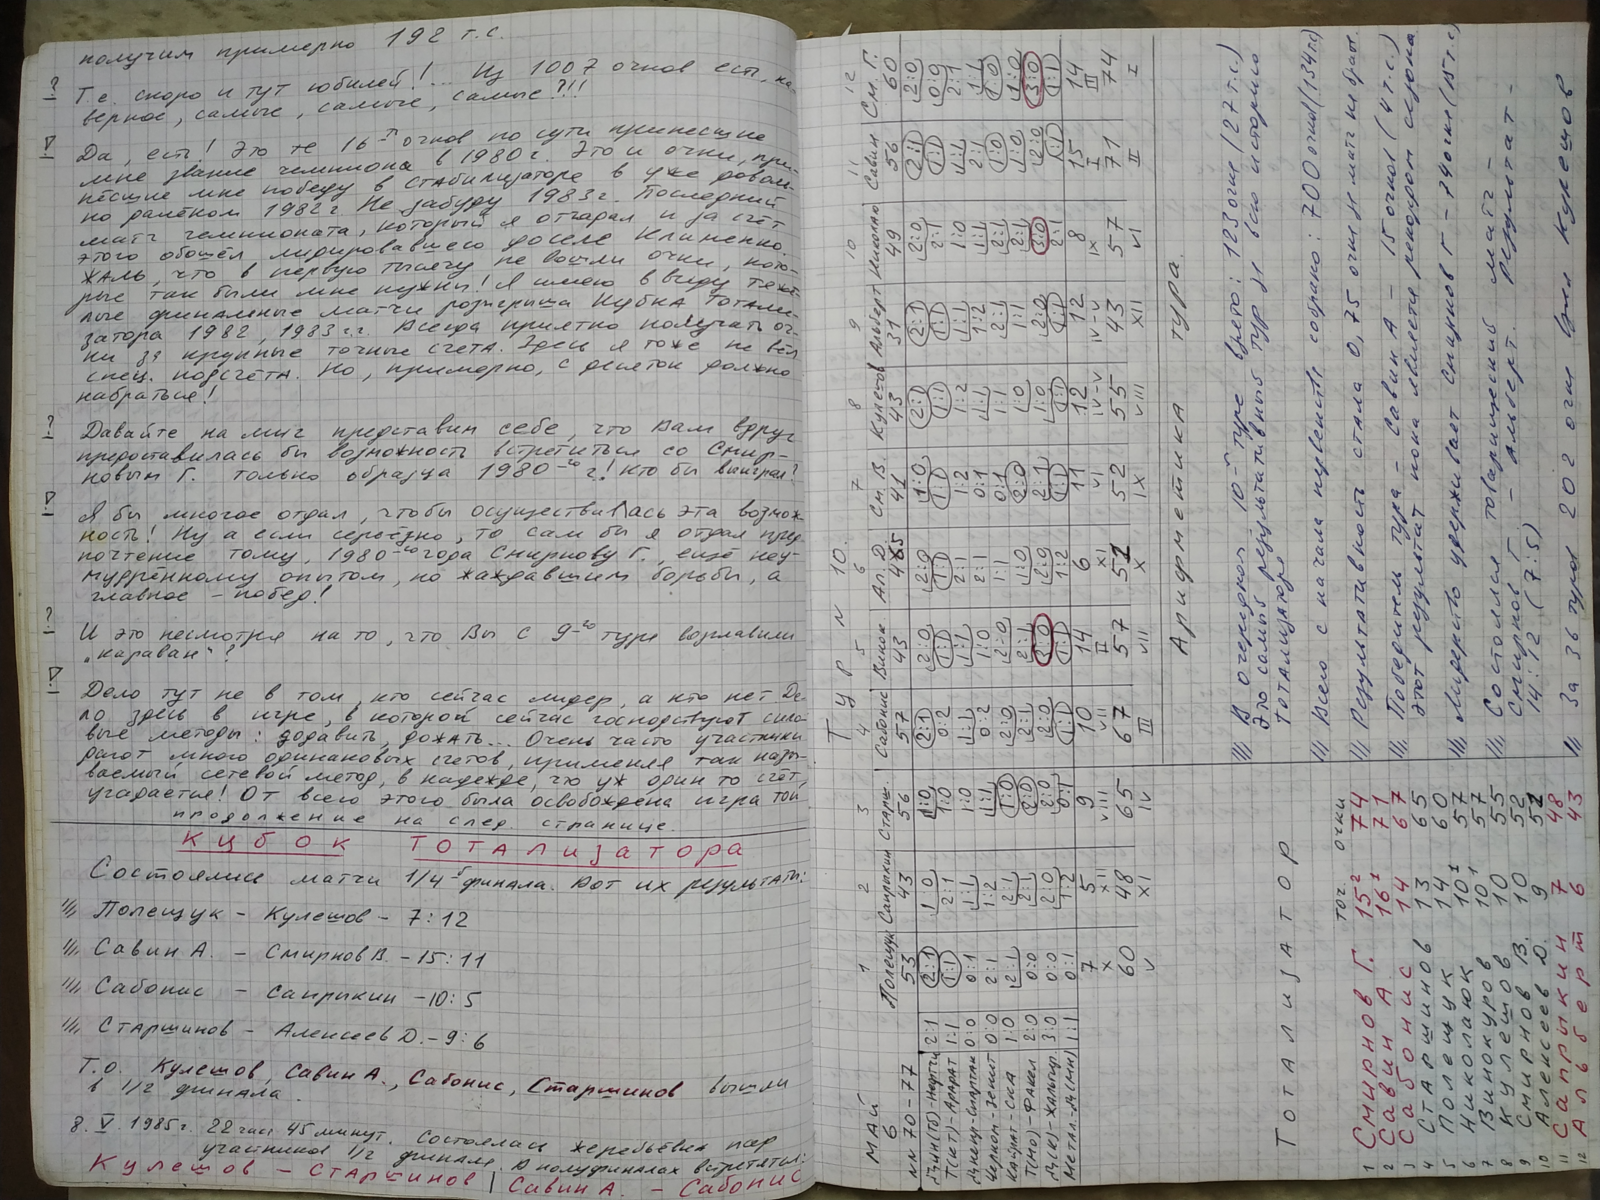 получим примерно 192 т.с.
Т.е. скоро и тут юбилей!... Из 1007 очков есть, на-
верное, самые, самые, самые?!!!
Да, есть! Это те 16 очков по сути принесшие
мне звание чемпиона в 1980г. Это и очки, при-
несшие мне победу в стабилизаторе в уже доволь-
но далёком 1982г. Не забуду 1983г. Последний
матч чемпионата, который я отыграл и за счёт
этого обошёл лидировавшего доселе Клименко
Жаль, что в первую тысячу не вошли очки, кото-
рые так были мне нужны! Я имею в виду
финальные матчи розыгрыша Кубка Тотали-
затора 1982, 1983 г.г. Всегда приятно получать оч-
ки за крупные точные счета. Здесь я тоже не вёл
спец. подсчёта. Но, примерно, с десяток должно
набраться!
? Давайте на миг представим себе, что Вам вдруг
предоставилась бы возможность встретиться со Смир-
новым Г. только образца 1980-го г.! Кто бы выиграл?
Я бы многое отдал, чтобы осуществилась эта возмож-
ность! Ну а если серьёзно, то сам бы я отдал пред
почтение тому, 1980-го года Смирнову Г., ещё неу-
мудрённому опытом, но жаждавшим борьбы, а
главное - побед!
? И это несмотря на то, что Вы с 9-го тура возглавили
„караван"?
Дело тут не в том, кто сейчас лидер, а кто нет Де-
ло здесь в игре, в которой сейчас господствуют сило-
вые методы: додавить, дожать... Очень часто участники
дают много одинаковых счетов, применяя так назы-
ваемый сетевой метод, в надежде, что уж один то счёт,
угадается! От всего этого была освобождена игра той
продолжение на след. странице.
КУБОК ТОТАЛИЗАТОРА
Состоялись матчи 1/4 финала. Вот их результаты:
Полещук - Кулешов - 7:12
Савин А. - Смирнов В. - 15:11
Сабонис - Сапрыкин - 10:5
Старшинов - Алексеев Д. - 9:6
Т.о. Кулешов, Савин А., Сабонис, Старшинов вышли
в 1/2 финала.
8. V. 1985г. 22 час 45 минут. Состоялась жеребьёвка пар
участников 1/2 финала. В полуфиналах встретятся:
Кулешов - Старшинов | Савин А. - Сабонис
ТУР N 10.
МАЙ 6 1 2 3 4 5 6 7 8 9 10 11 12
Полещук Сапрыкин Старш. Сабонис Винок Ал. Д. См. В. Кулешов Альберт Николаю Савин См. Г.
NN 70-77 53 43 56 57 43 45 41 43 31 49 56 60
Дин(Тб)-Нефтчи 2:1 2:1 1:0 1:0 2:1 2:0 2:0 1:0 2:1 2:1 2:0 2:1 2:0
Т(К-Т)-Арарат 1:1 1:1 2:1 1:0 0:2 1:1 1:1 1:1 1:1 1:1 2:1 1:1 0:0
Днепр-Спартак 0:0 0:1 1:1 1:0 1:1 1:1 2:1 1:2 1:2 1:1 1:0 1:1 2:1
Черном-Зенит 0:0 2:1 1:2 1:1 0:2 1:0 2:1 0:1 1:1 1:2 1:1 2:1 1:1
Кайрат-СКА 1:0 2:1 2:1 1:0 2:0 2:0 1:1 0:1 1:1 2:1 2:1 1:0 1:0
Т(МО)-Факел 2:0 0:0 2:1 2:0 2:1 2:1 1:0 2:0 1:0 1:1 2:1 1:0 1:0
Д(К)-Жальгир 3:0 0:0 2:0 2:0 2:0 3:0 2:0 2:1 1:0 2:0 3:0 2:0 3:0
Метал-Д(Мн) 1:1 0:1 1:2 0:1 1:1 1:1 1:2 1:1 1:1 1:1 2:1 1:1 1:1
7 5 9 10 14 6 11 12 12 8 15 14
X XII VIII VII II XI VI IV-V IV-V IX I III
60 48 65 67 57 51 52 55 43 57 71 74
V XI IV III VII X IX VIII XII VI II I
ТОТАЛИЗАТОР
точ. очки
1 Смирнов Г. 15² 74
2 Савин А 16¹ 71
3 Сабонис 14 67
4 Старшинов 13 65
5 Полещук 14 60
6 Николаюк 10² 57
7 Винокуров 10¹ 57
8 Кулешов 10 55
9 Смирнов В. 10 52
10 Алексеев Д. 9 51
11 Сапрыкин 7 48
12 Альберт 6 43
Арифметика тура.
В очередном 10-м туре взято: 123 очка (27 т.с.)
Это самый результативный тур за всю историю
тотализатора
Всего с начала первенства собрано: 700 очков (134 т.с)
Результативность стала 0,75 очка за матч на брата.
Победитель тура - Савин А - 15 очков (4 т.с.)
этот результат пока является рекордом сезона
Лидерство удерживает Смирнов Г - 74 очка (15 т.с)
Состоялся товарищеский матч -
Смирнов Г. - Альберт. Результат -
14:12 (7:5)
За 36 туров 202 очка взял Кулешов